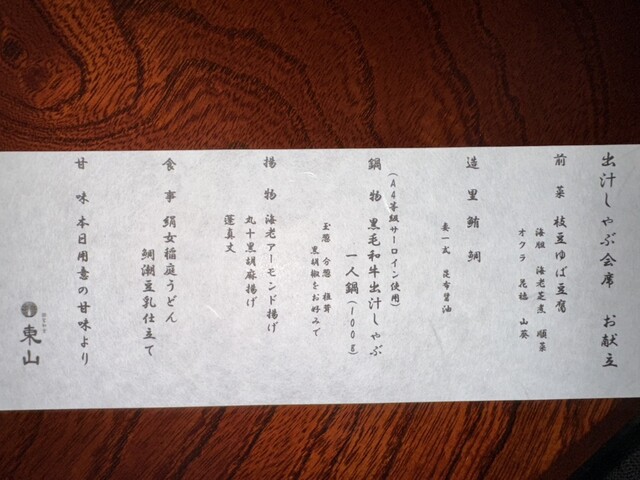 出汁しゃぶ会席 お献立
前菜 枝豆ゆば豆腐
海胆 海老芝煮 順菜
オクラ 花穂 山葵
造里 鮪 鯛
妻一式 昆布醤油
鍋物 黒毛和牛出汁しゃぶ
(A4等級サーロイン使用)
一人鍋(100g)
玉葱 分葱 椎茸
黒胡椒をお好みで
揚物 海老アーモンド揚げ
丸十黒胡麻揚げ
蓮真丈
食事 絹女稲庭うどん
鯛潮豆乳仕立て
甘味 本日用意の甘味より
東山